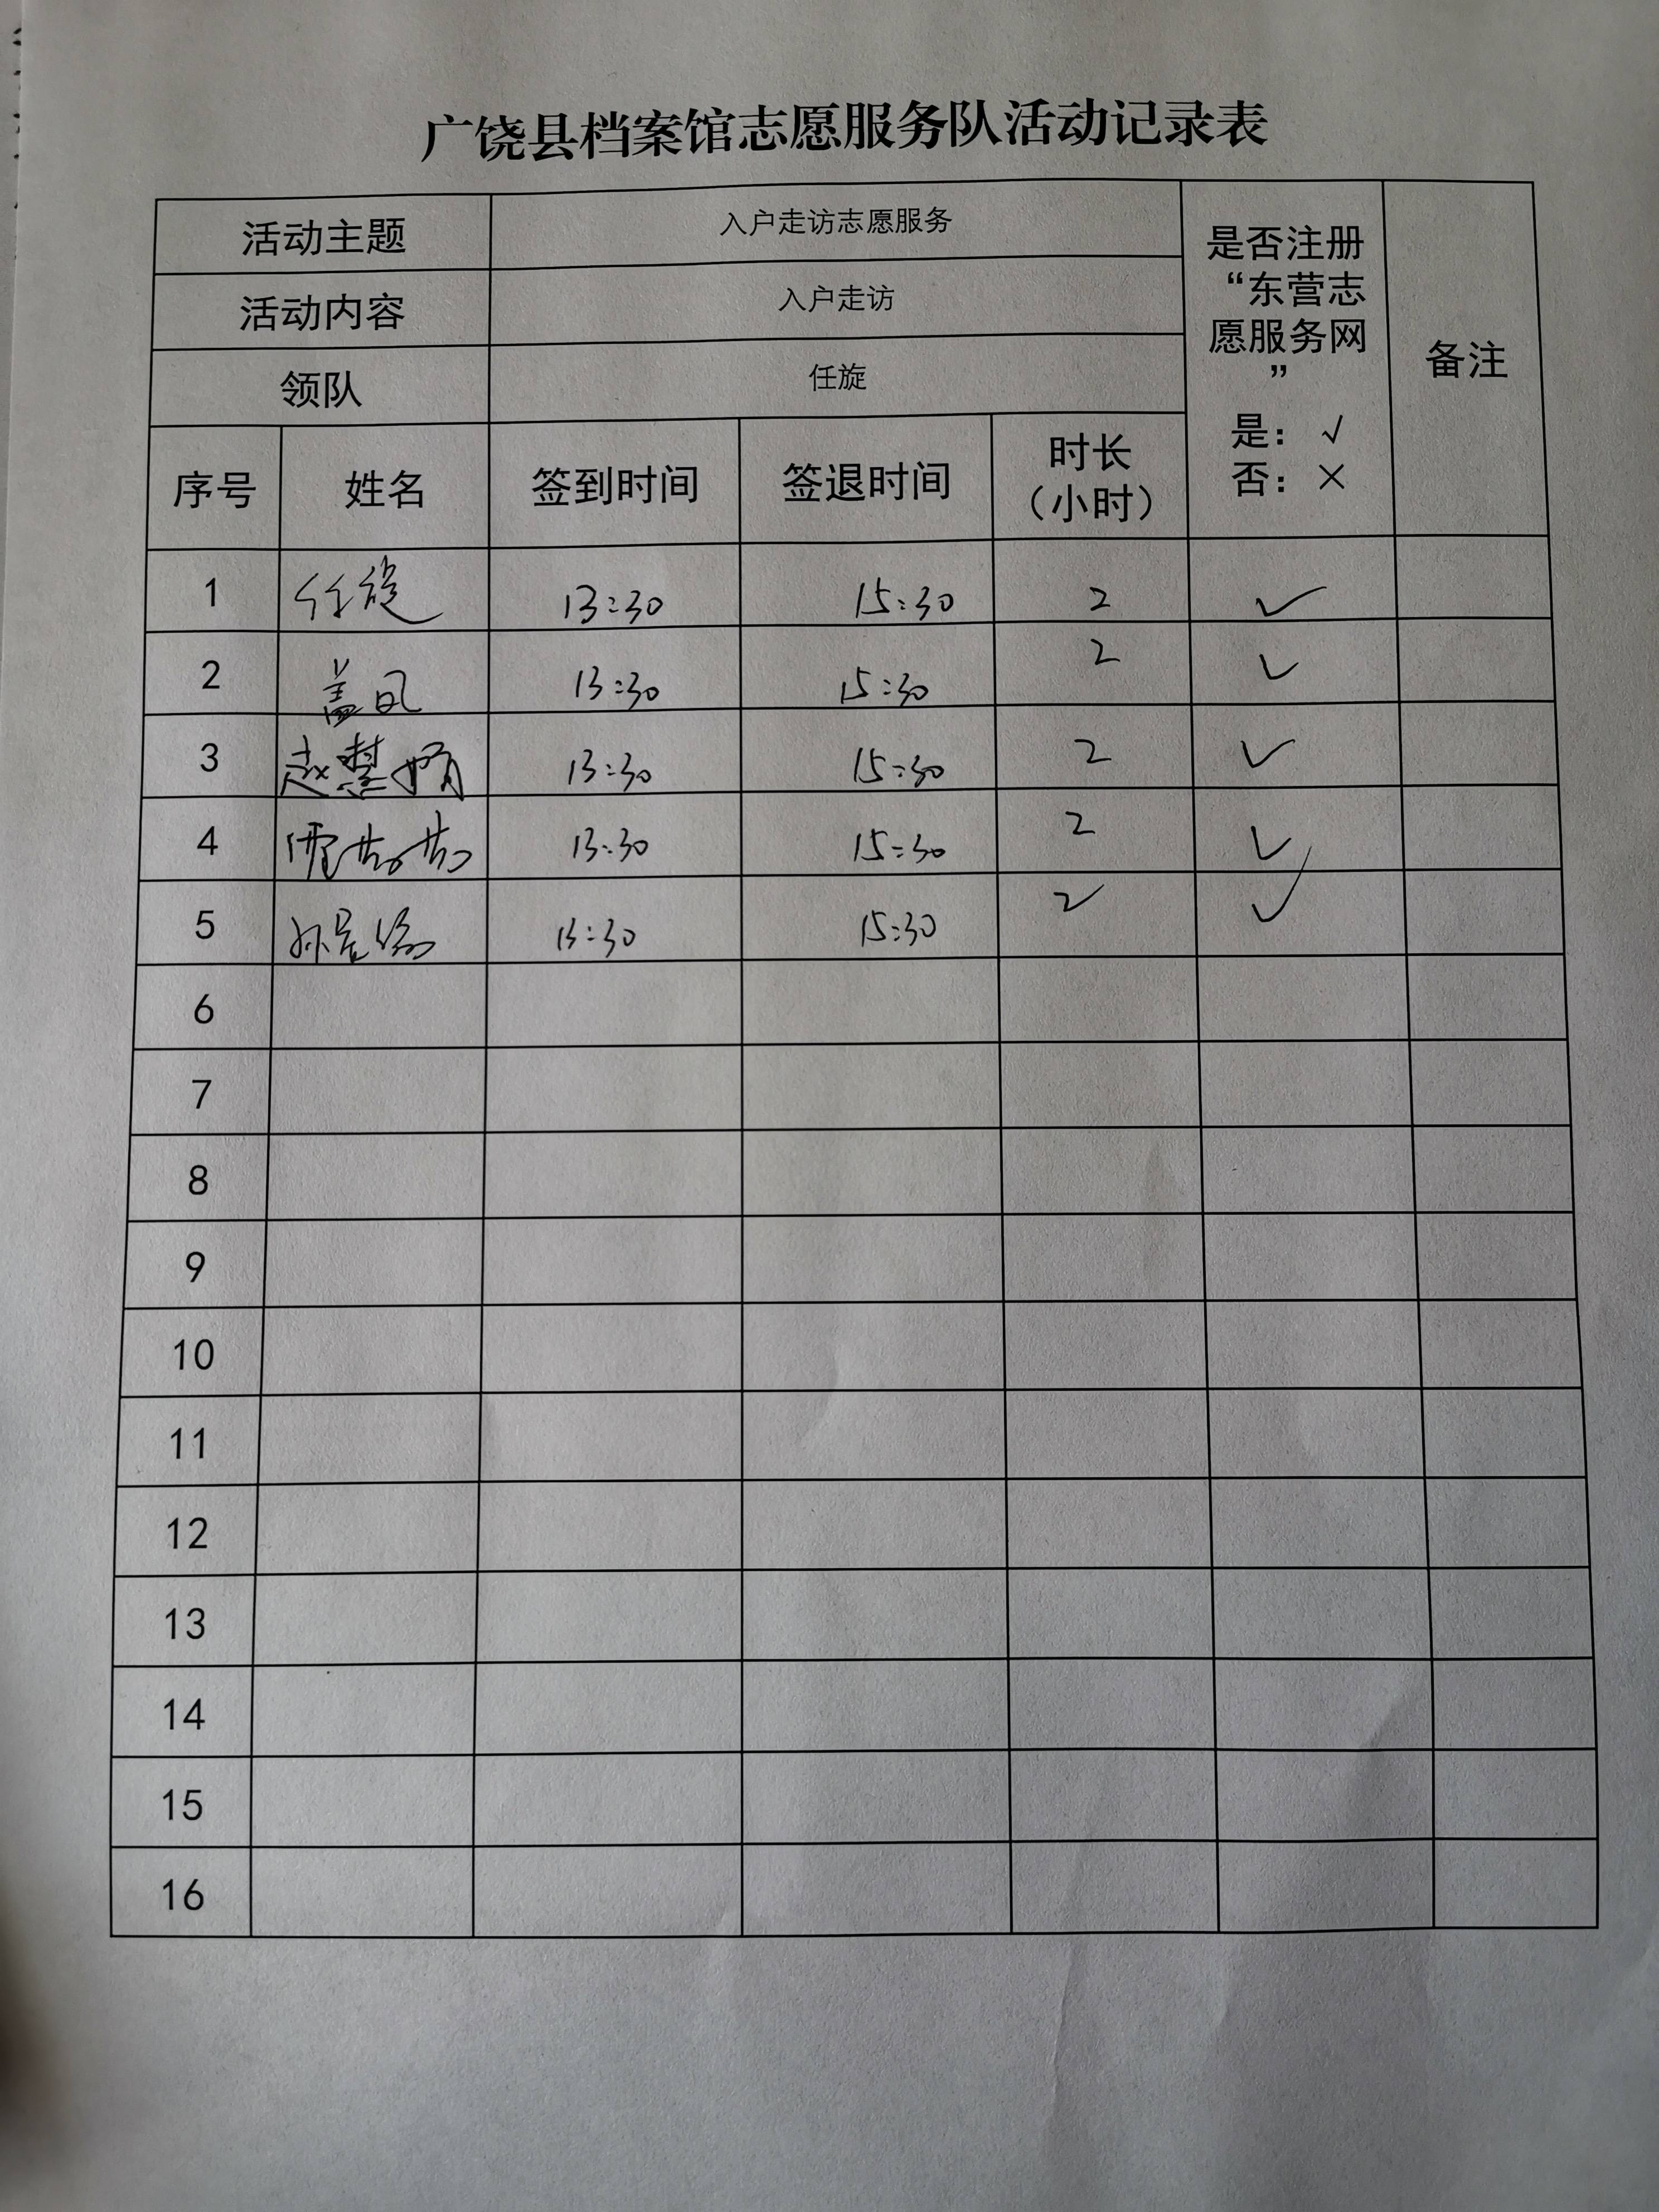 广饶县档案馆志愿服务队活动记录表
活动主题 入户走访志愿服务
活动内容 入户走访
领队 任旋
是否注册
“东营志
愿服务网
”
是：√
否：×
备注
序号 姓名 签到时间 签退时间 时长
（小时）
1 任旋 13:30 15:30 2 ✓
2 盖 13:30 15:30 2 ✓
3 赵慧娟 13:30 15:30 2 ✓
4 13:30 15:30 2 ✓
5 孙 13:30 15:30 2 ✓
6
7
8
9
10
11
12
13
14
15
16